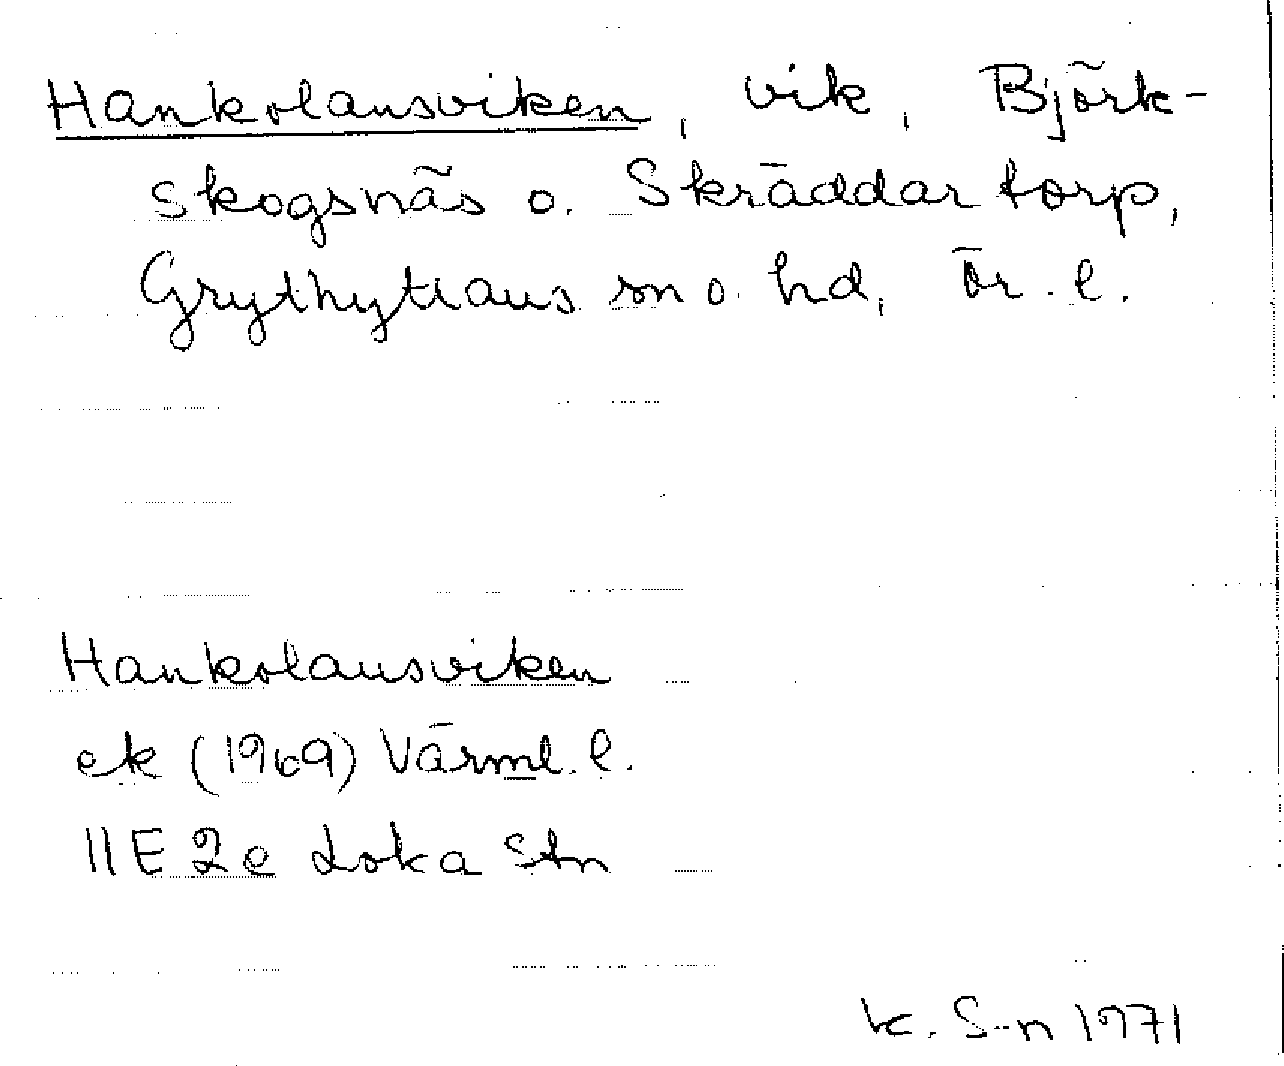 Hankolansviken, vik, Björk-
skogsnäs o. Skräddartorp,
Grythyttans sn o. hd, Ör. l.
Hankolansviken
ek (1969) Värml. l.
11E 2e Loka Stn
k. S-n 1971